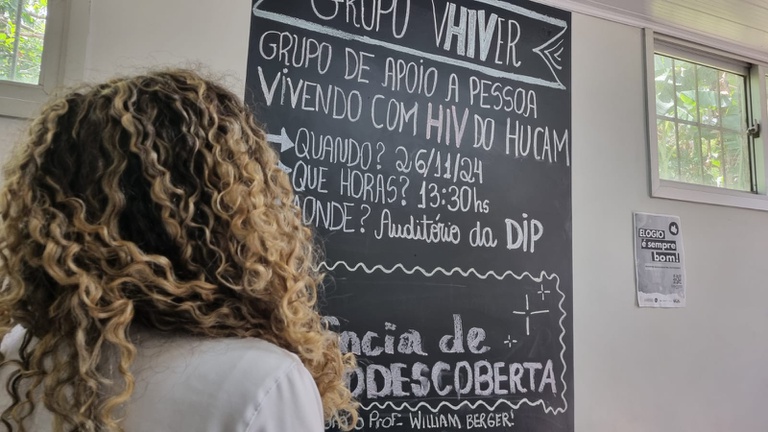 GRUPO VHIVER
GRUPO DE APOIO A PESSOA
VIVENDO COM HIV DO HUCAM
QUANDO? 26/11/24
QUE HORAS? 13:30hs
AONDE? Auditório da DIP
ência de
ODESCOBERTA
PROF- WILLIAM BERGER!
ELOGIO
é sempre
bom!